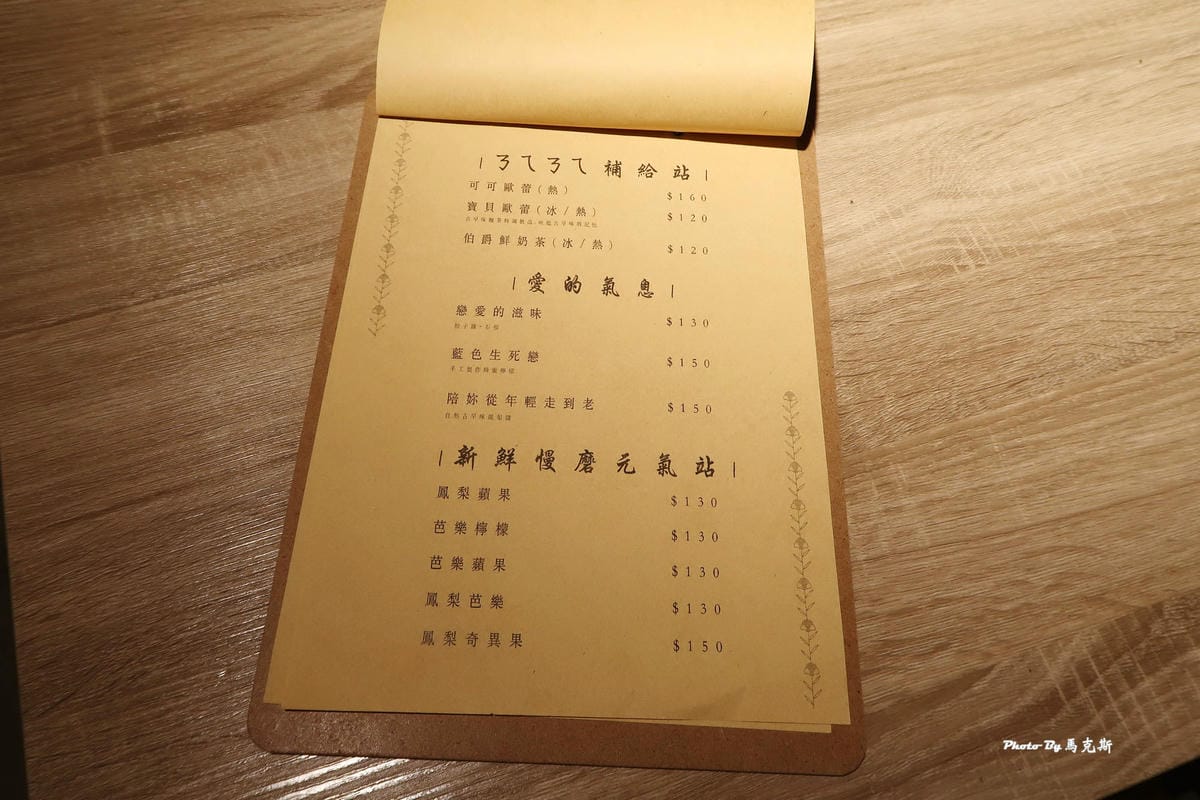 ㄋㄟㄋㄟ補給站
可可歐蕾(熱) $160
寶貝歐蕾(冰/熱) $120
伯爵鮮奶茶(冰/熱) $120
愛的氣息
戀愛的滋味 $130
藍色生死戀 $150
手工製作蜂蜜檸檬
陪妳從年輕走到老 $150
新鮮慢磨元氣站
鳳梨蘋果 $130
芭樂檸檬 $130
芭樂蘋果 $130
鳳梨芭樂 $130
鳳梨奇異果 $150
Photo By 馬克斯